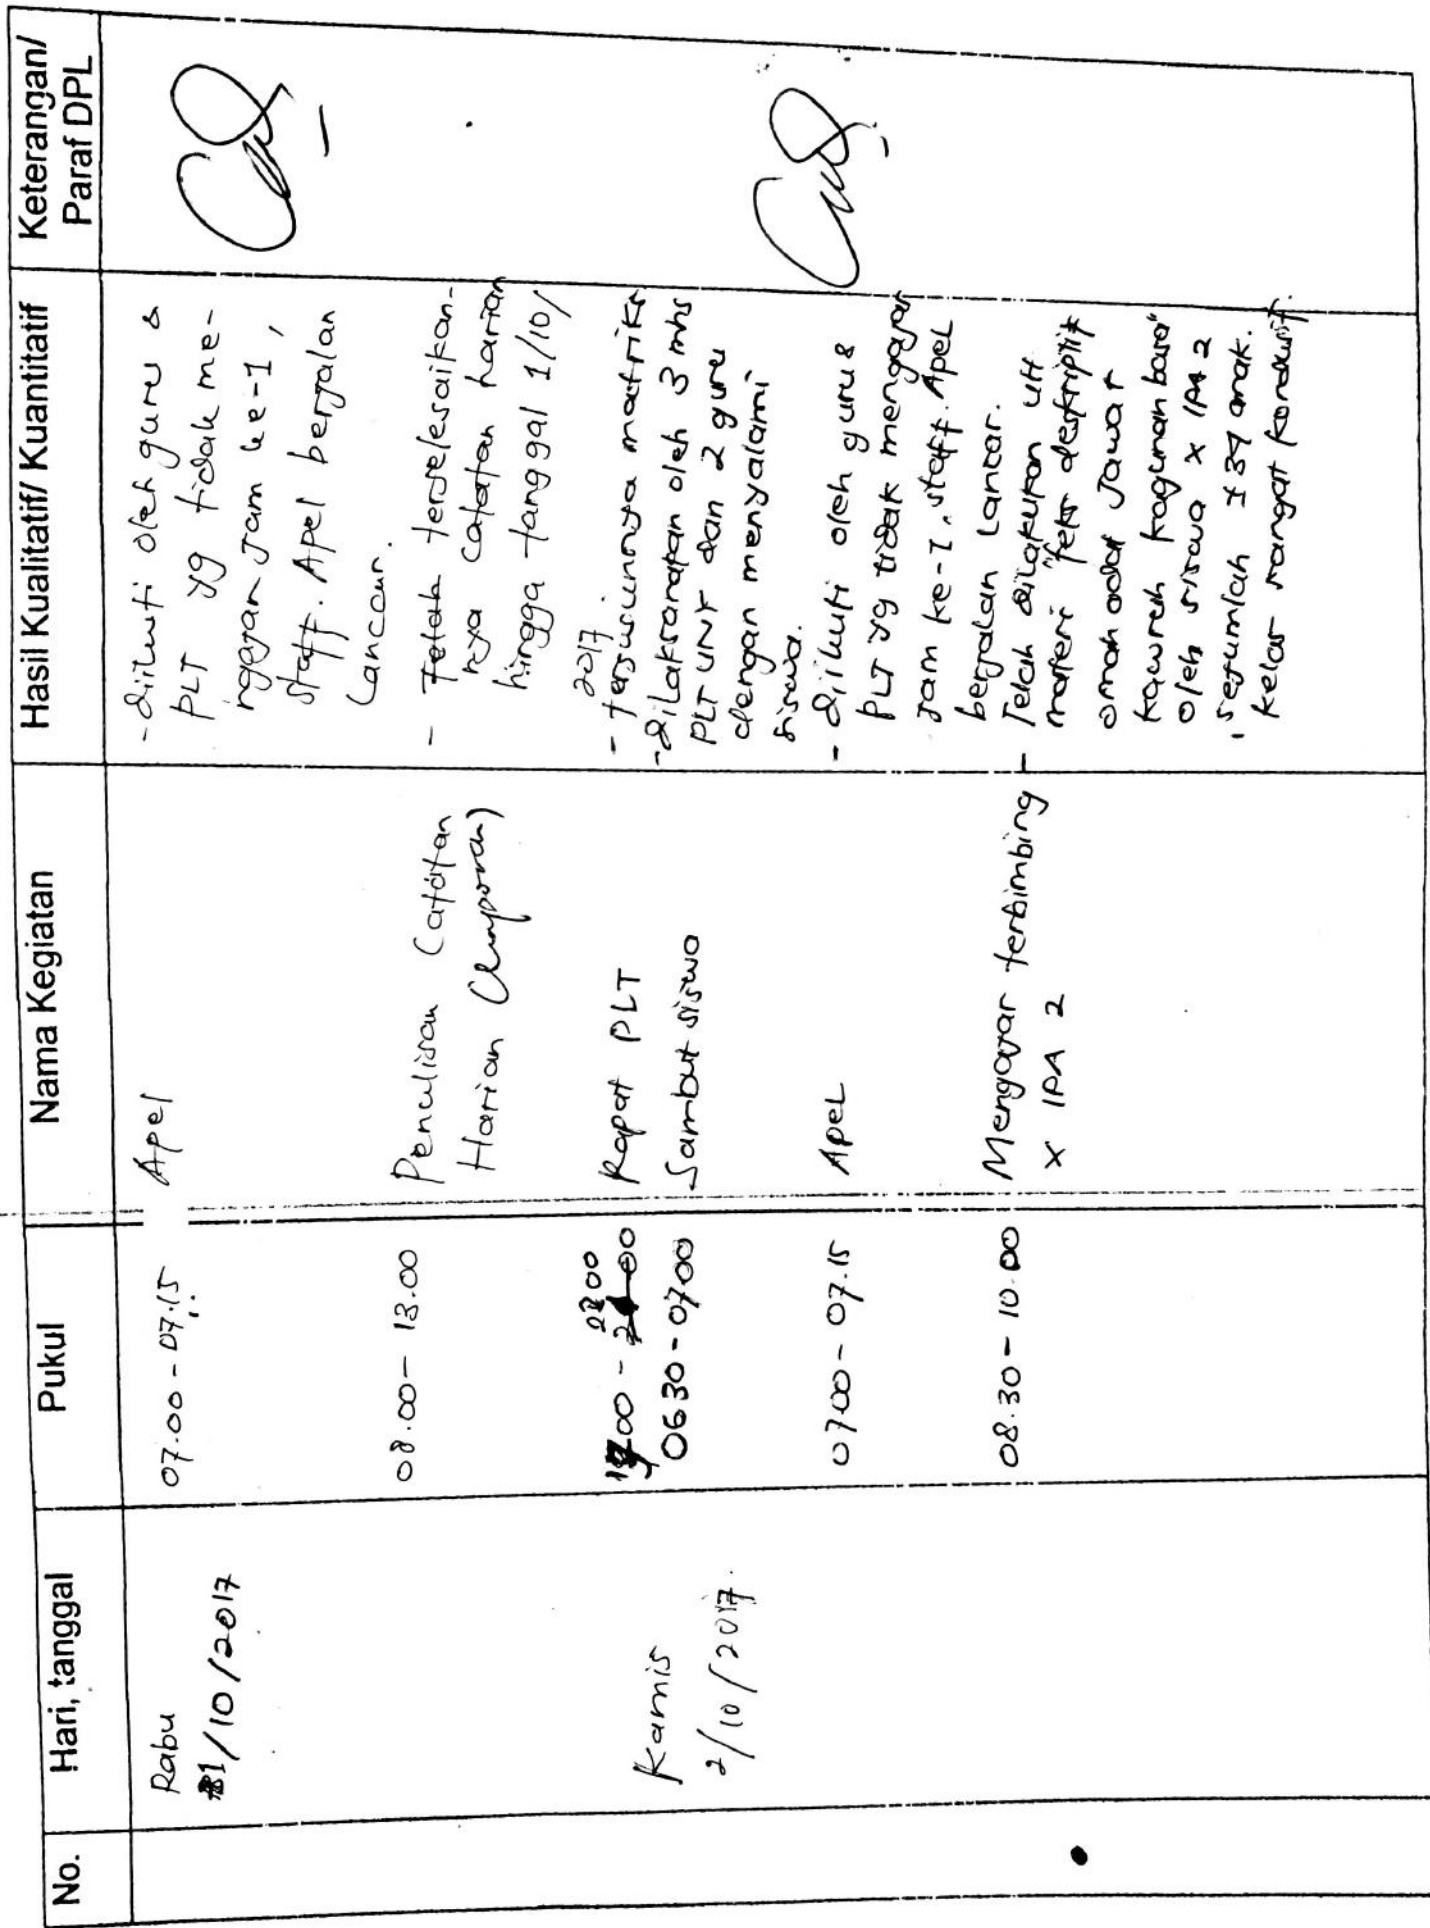 No.
Hari, tanggal
Pukul
Nama Kegiatan
Hasil Kualitatif/ Kuantitatif
Keterangan/
Paraf DPL
Rabu
1/10/2017
07.00 - 07.15
Apel
- diikuti oleh guru &
PLT yg tidak me-
ngajar jam ke-1,
staff. Apel berjalan
Lancar.
08.00 - 13.00
Penulisan Catatan
Harian
- Telah terselesaikan-
nya catatan harian
hingga tanggal 1/10/
2017
Rapat PLT
- tersusunnya matriks
Kamis
2/10/2017.
0630 - 0700
Sambut siswa
- dilaksanakan oleh 3 mhs
PLT UNY dan 2 guru
dengan menyalami
siswa.
0700 - 07.15
Apel
- diikuti oleh guru &
PLT yg tidak mengajar
jam ke-I, staff. Apel
berjalan Lancar.
08.30 - 10.00
Mengajar terbimbing
X IPA 2
- Telah dilakukan
materi "teks deskriptif
omah adat Jawa
oleh siswa X IPA 2
sejumlah ± 34 anak.
kelas sangat kondusif.